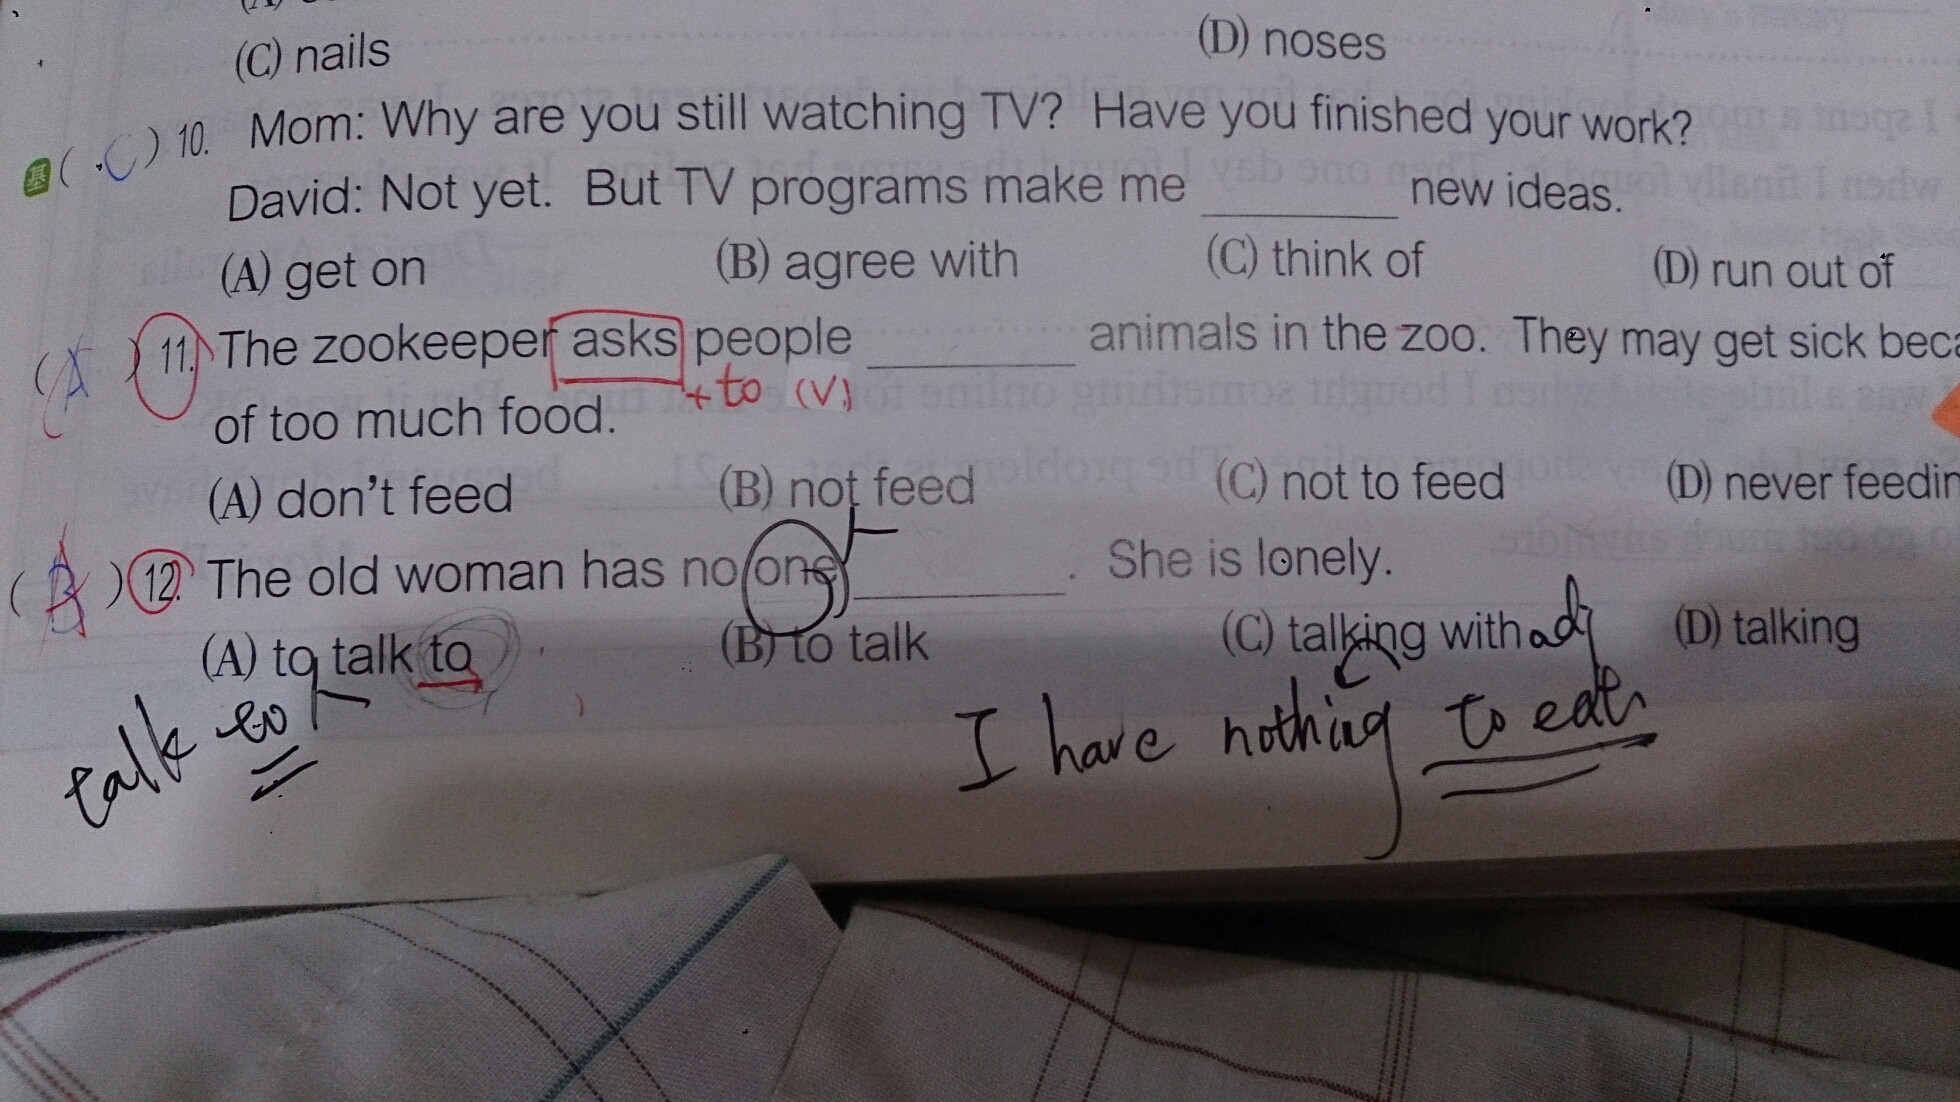 (C) nails (D) noses
基 ( C ) 10. Mom: Why are you still watching TV? Have you finished your work?
David: Not yet. But TV programs make me ________ new ideas.
(A) get on (B) agree with (C) think of (D) run out of
( ) 11. The zookeeper asks people ________ animals in the zoo. They may get sick beca
+ to (V)
of too much food.
(A) don't feed (B) not feed (C) not to feed (D) never feedin
( ) 12. The old woman has no one ________. She is lonely.
(A) to talk to (B) to talk (C) talking with (D) talking
adj
talk to
I have nothing to eat